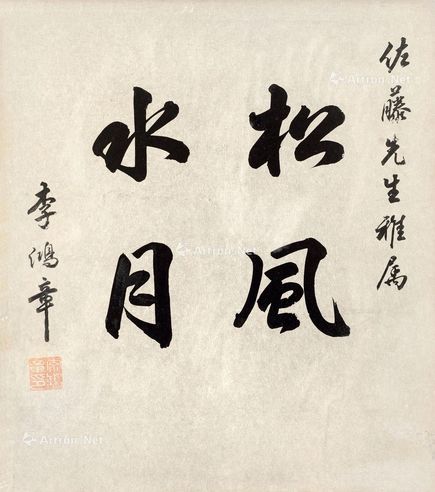 佐藤先生雅属
松風
水月
李鴻章
Artron.Net
Artron.Net
Artron.Net
Artron.Net